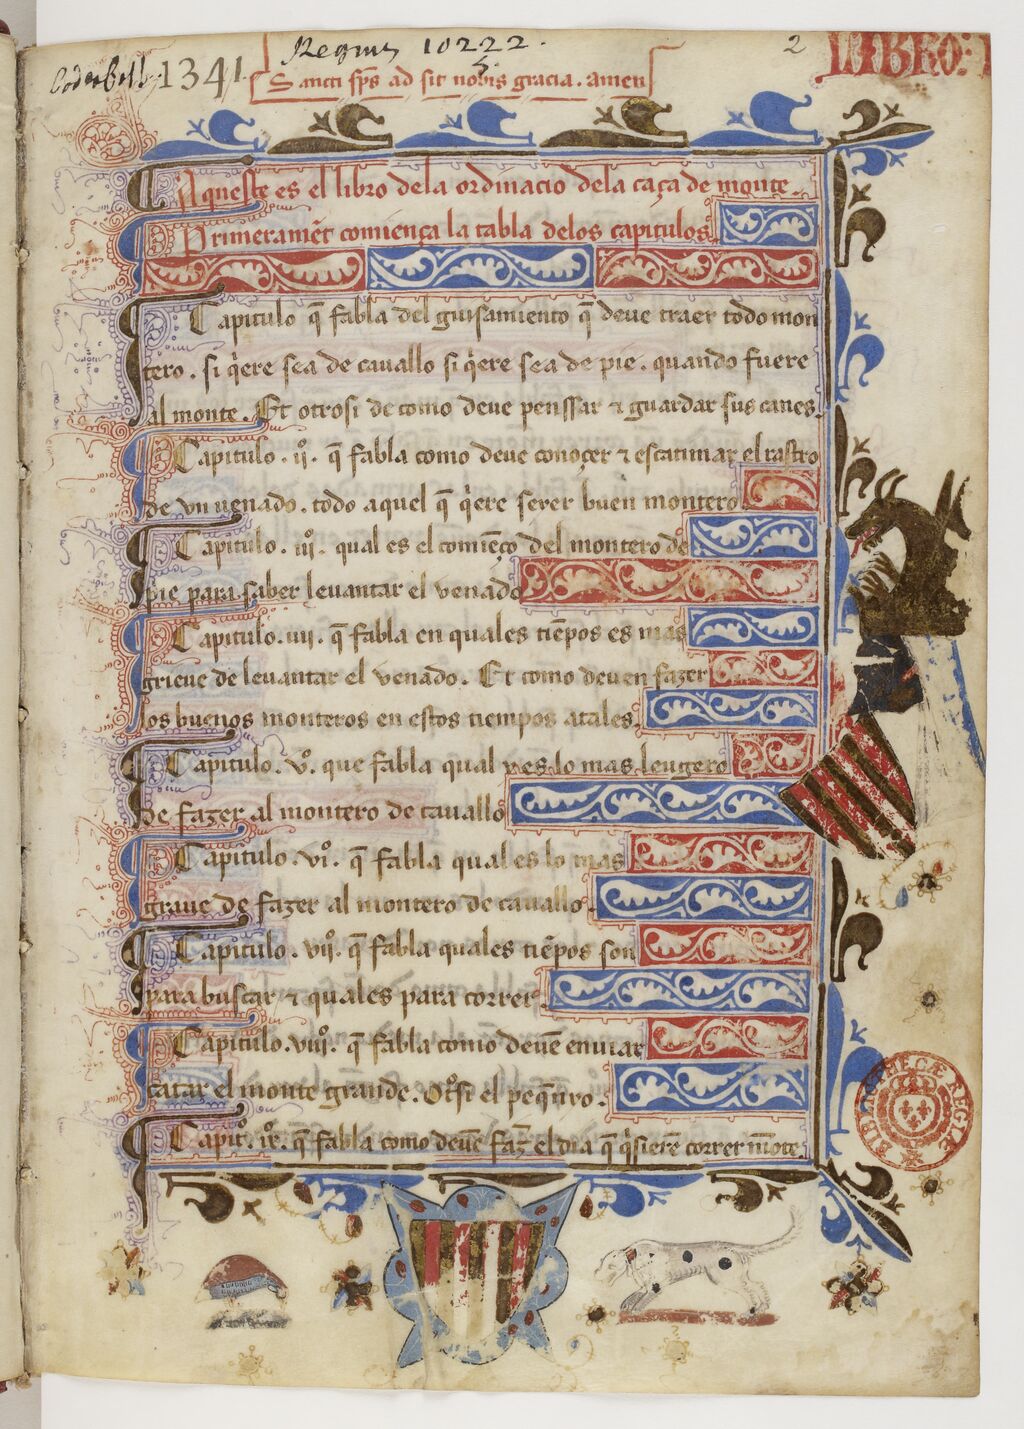 Regius 10222.
5.
2
LIBRO: I
1341.
Sancti sps ad sit nobis gracia. amen
Aqueste es el libro dela ordinacio dela caça de monte.
Primeramēt comiença la tabla delos capitulos.
Capitulo q̄ fabla del guisamiento q̄ deve traer todo mon
tero. si q̇ere sea de cavallo si q̇ere sea de pie. quando fuere
al monte. Et otrosi de como deve penssar ⁊ guardar sus canes.
Capitulo .ijº. q̄ fabla como deve conoçer ⁊ escatimar el rastro
de vn venado. todo aquel q̄ q̇ere serer buen montero.
Capitulo .iijº. qual es el comiēço del montero de
pie para saber levantar el venado
Capitulo .iiij. q̄ fabla en quales tiēpos es mas
grieue de leuantar el venado. Et como deven fazer
los buenos monteros en estos tiempos atales.
Capitulo .vº. que fabla qual yes lo mas leugero
De fazer al montero de cavallo
Capitulo .viº. q̄ fabla qual es lo mas
graue de fazer al montero de cauallo.
Capitulo .vijº. q̄ fabla quales tiēpos son
para buscar ⁊ quales para correr.
Capitulo .viijº. q̄ fabla como deuē enuiar
catar el monte grande. Otºsi el peq̄nno.
Capitº. ixº. q̄ fabla como deuē faz̄ el dia q̄ q̇sierē correr mōte.
BIBLIOTHECÆ REGIÆ